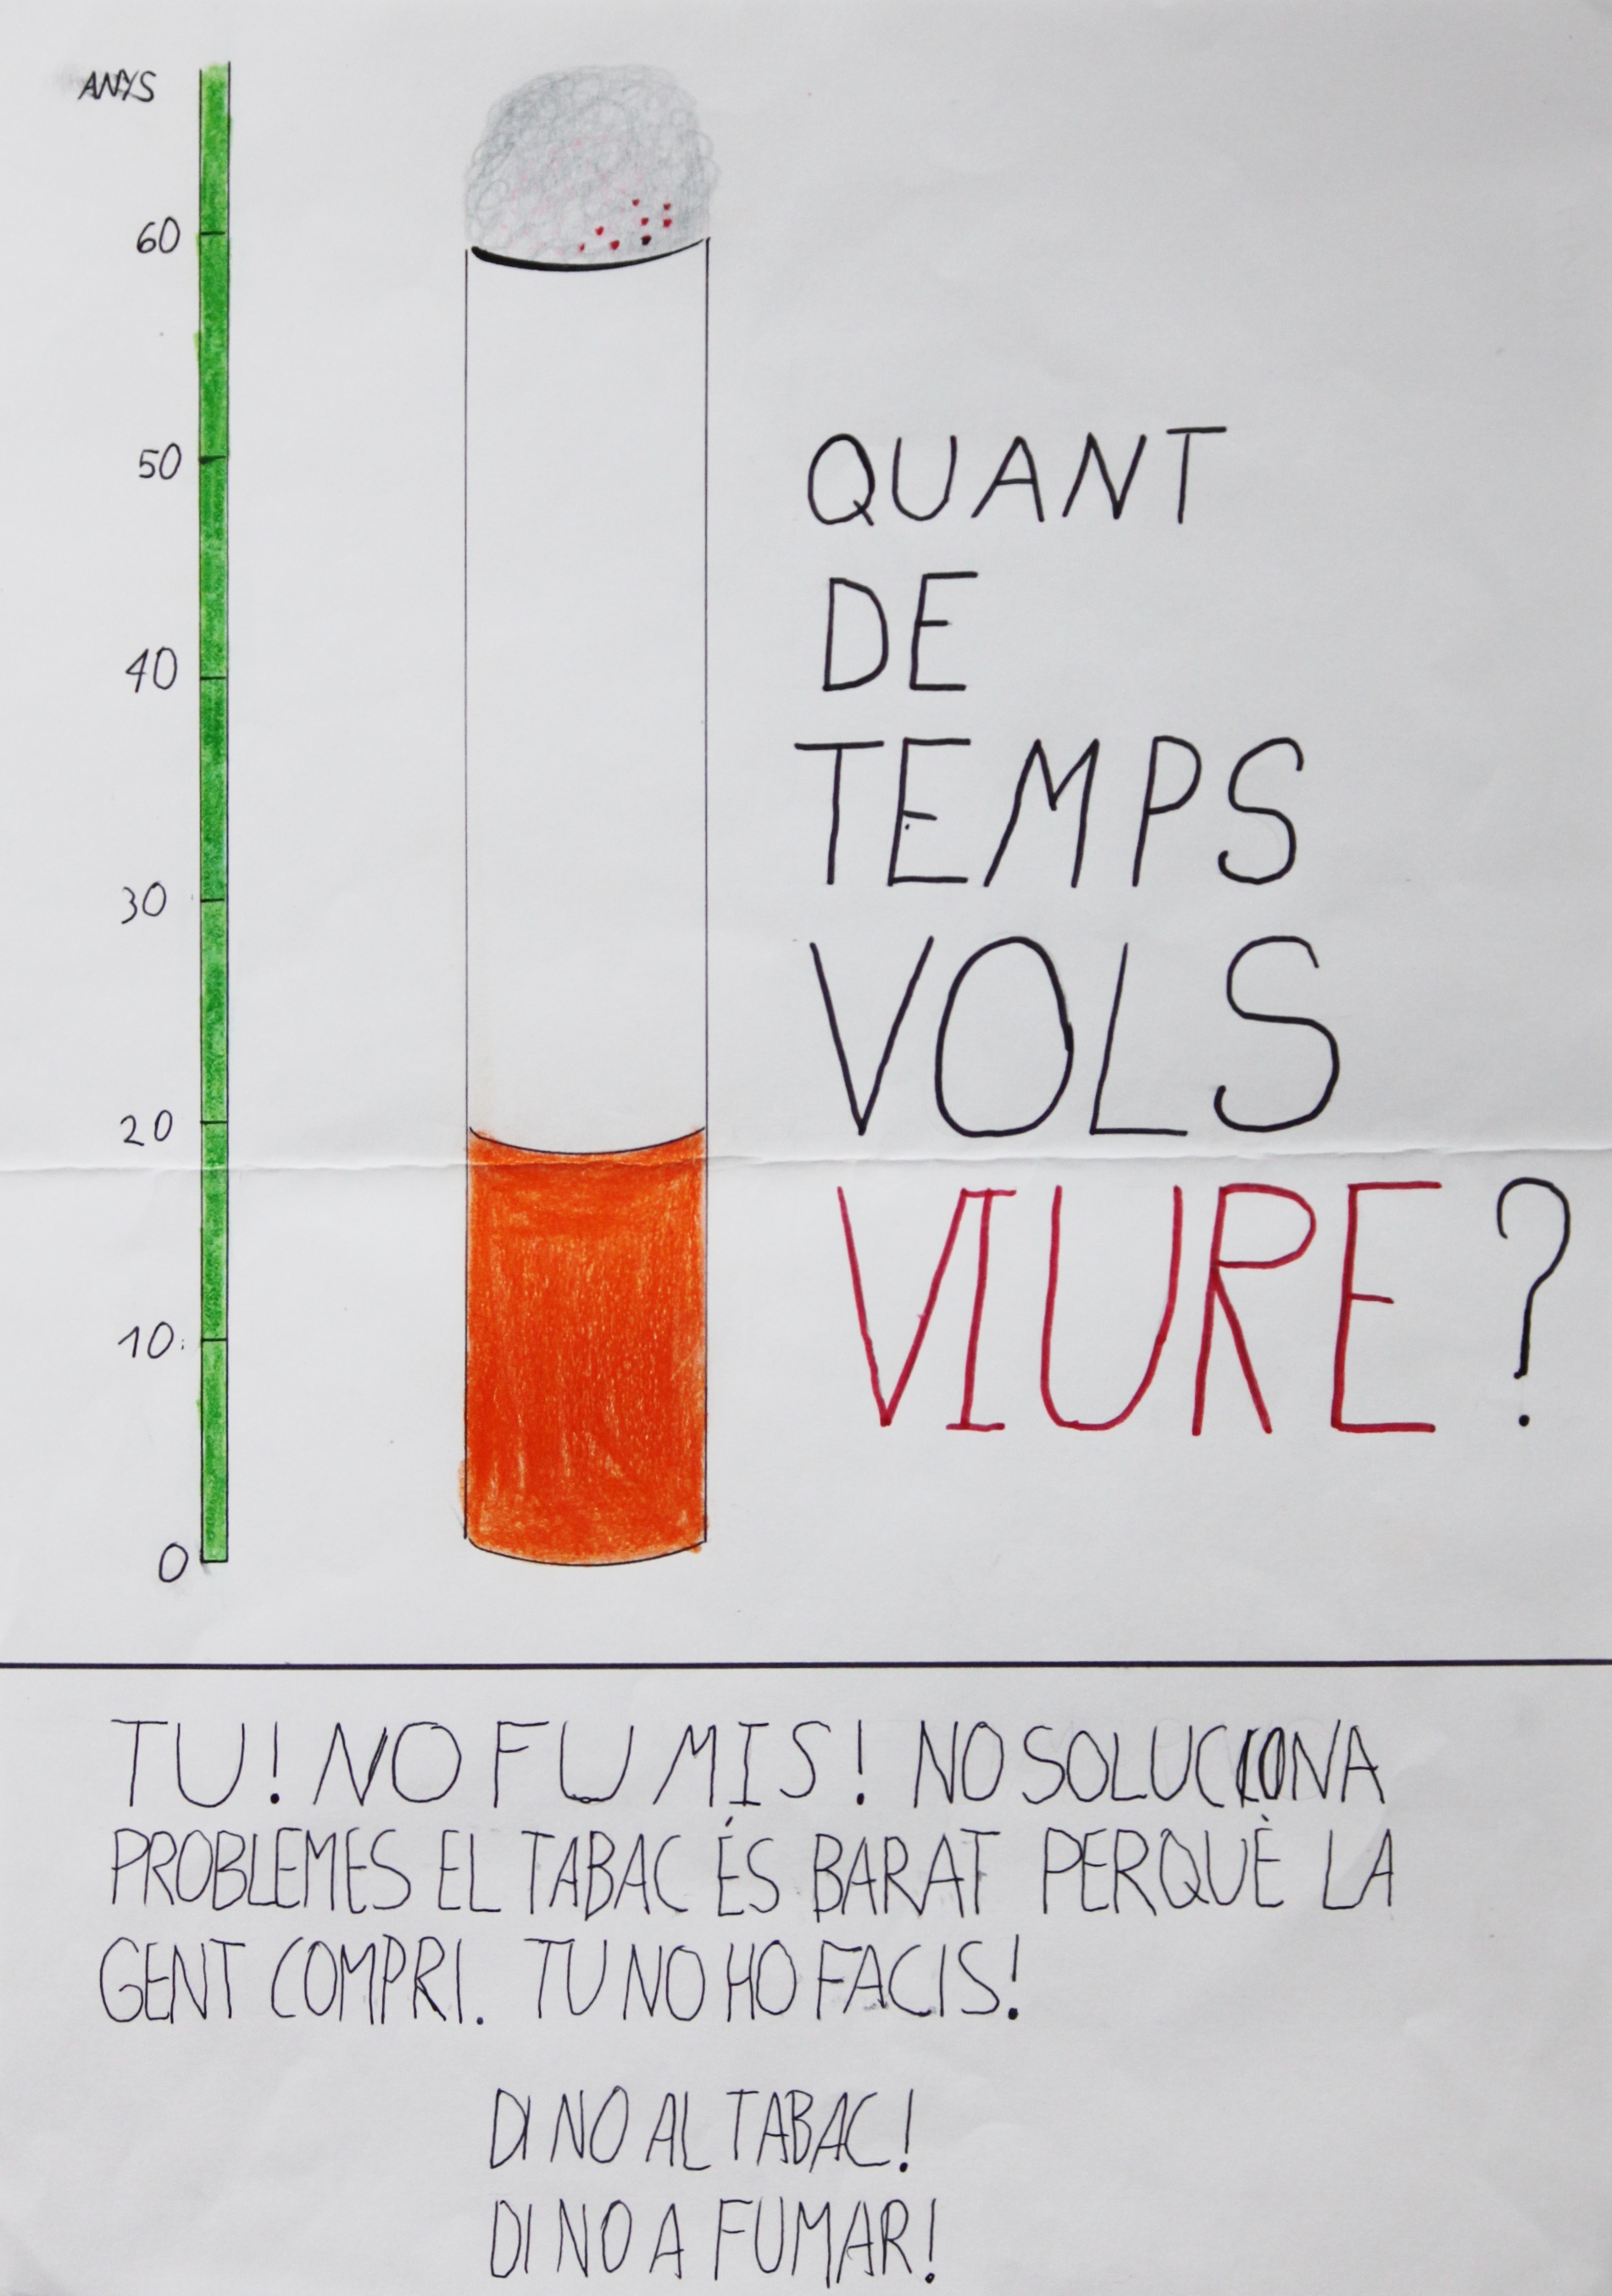 ANYS
60
50
40
30
20
10
0
QUANT
DE
TEMPS
VOLS
VIURE?
TU! NO FUMIS! NO SOLUCIONA
PROBLEMES EL TABAC ÉS BARAT PERQUÈ LA
GENT COMPRI. TU NO HO FACIS!
DI NO AL TABAC!
DI NO A FUMAR!